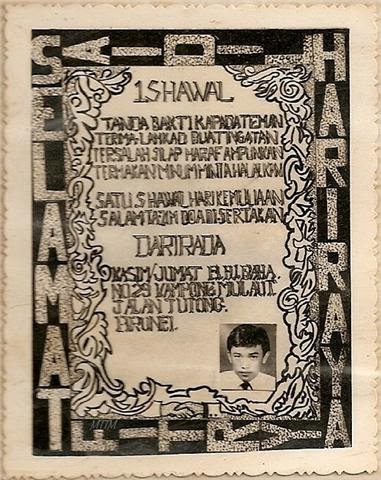 SELAMAT
AIDIL
HARIRAYA
FITRAH
1 SHAWAL
TANDA BAKTI KAPADA TEMAN
TERMA-LAHKAD BUAT INGATAN
TERSALAH SILAP HARAF AMPUNKAN
TERMAKAN MINUM MINTA HALALKAN
SATU SHAWAL HARI KEMULIAAN
SALAM TAEDZIM DOA DI SERTAKAN
DARIPADA
KASIM JUMAT
NO. 29 KAMPONG MULAUT.
JALAN TUTONG.
BRUNEI.
MDM